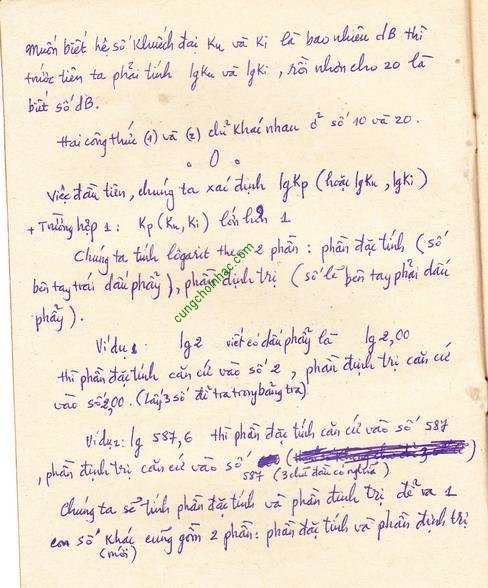 Muốn biết hệ số khuếch đại Ku và Ki là bao nhiêu dB thì
trước tiên ta phải tính lgKu và lgKi, rồi nhơn cho 20 là
biết số dB.
Hai công thức (1) và (2) chỉ khác nhau ở số 10 và 20.
o O o
Việc đầu tiên, chúng ta xác định lgKp (hoặc lgKu, lgKi)
+ Trường hợp 1: Kp (Ku, Ki) lớn hơn 1
Chúng ta tính lôgarit theo 2 phần: phần đặc tính (số
bên tay trái dấu phẩy), phần định trị (số lẻ bên tay phải dấu
phẩy).
cungchoinhac.com
Ví dụ 1: lg2 viết có dấu phẩy là lg2,00
thì phần đặc tính căn cứ vào số 2, phần định trị căn cứ
vào số 2,00. (lấy 3 số để tra trong bảng tra)
Ví dụ 2: lg 587,6 thì phần đặc tính căn cứ vào số 587
, phần định trị căn cứ vào số
587 (3 chữ đầu có nghĩa)
Chúng ta sẽ tính phần đặc tính và phần định trị để ra 1
con số khác cũng gồm 2 phần: phần đặc tính và phần định trị
(mới)